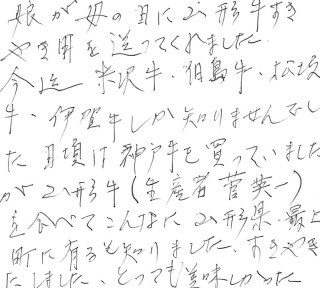 娘が母の日に山形牛すき
やき用を送ってくれました
今迄 米沢牛、但馬牛、松坂
牛、伊賀牛しか知りませんでし
た 日頃は神戸牛を買っていました
が山形牛(生産者 菅英一)
を食べてこんなに山形県 最上
町に有るも知りました、すきやき
にしました、とっても美味しかった